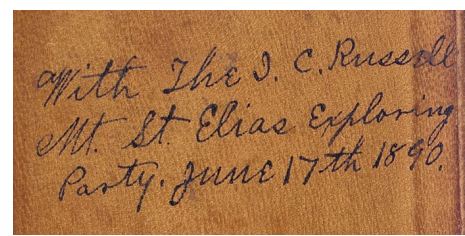 With The I. C. Russell
Mt. St. Elias Exploring
Party. June 17th 1890.